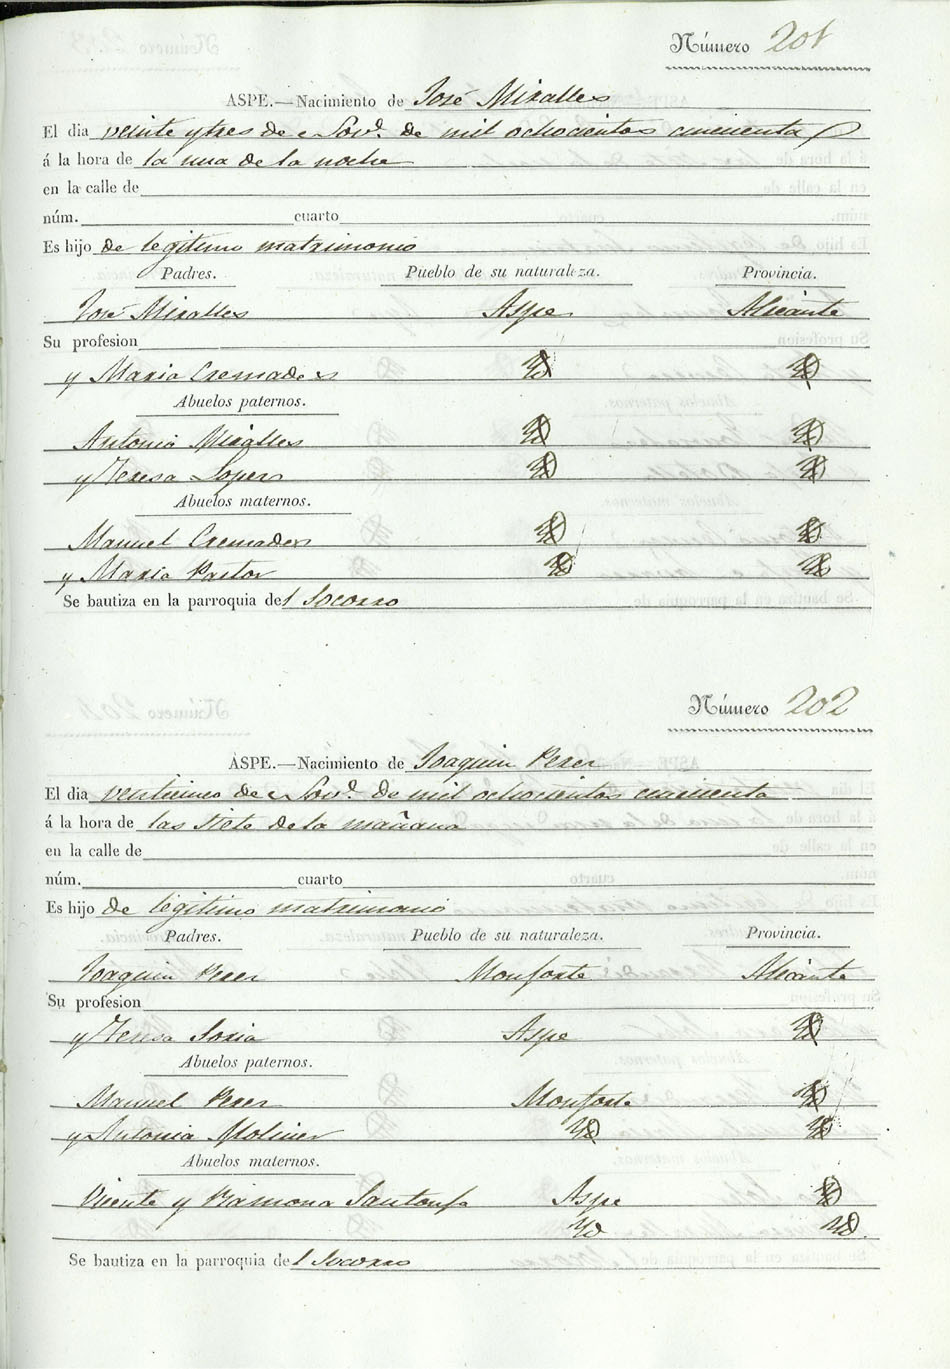 Número 201
ASPE.—Nacimiento de José Miralles
El dia veinte y tres de Nov.e de mil ochocientos cincuenta
á la hora de la una de la noche
en la calle de
núm. cuarto
Es hijo de legitimo matrimonio
Padres. Pueblo de su naturaleza. Provincia.
José Miralles Aspe Alicante
Su profesion
y Maria Cremades Yd Yd
Abuelos paternos.
Antonio Miralles Yd Yd
y Teresa Lopez Yd Yd
Abuelos maternos.
Manuel Cremades Yd Yd
y Maria Pastor Yd Yd
Se bautiza en la parroquia del Socorro
Número 202
ASPE.—Nacimiento de Joaquin Perez
El dia venticinco de Nov.e de mil ochocientos cincuenta
á la hora de las siete de la mañana
en la calle de
núm. cuarto
Es hijo de legitimo matrimonio
Padres. Pueblo de su naturaleza. Provincia.
Joaquin Perez Monforte Alicante
Su profesion
y Teresa Soria Aspe Yd
Abuelos paternos.
Manuel Perez Monforte Yd
y Antonia Moliner Yd Yd
Abuelos maternos.
Vicente y Ramona Santonja Aspe Yd
Yd Yd
Se bautiza en la parroquia del Socorro